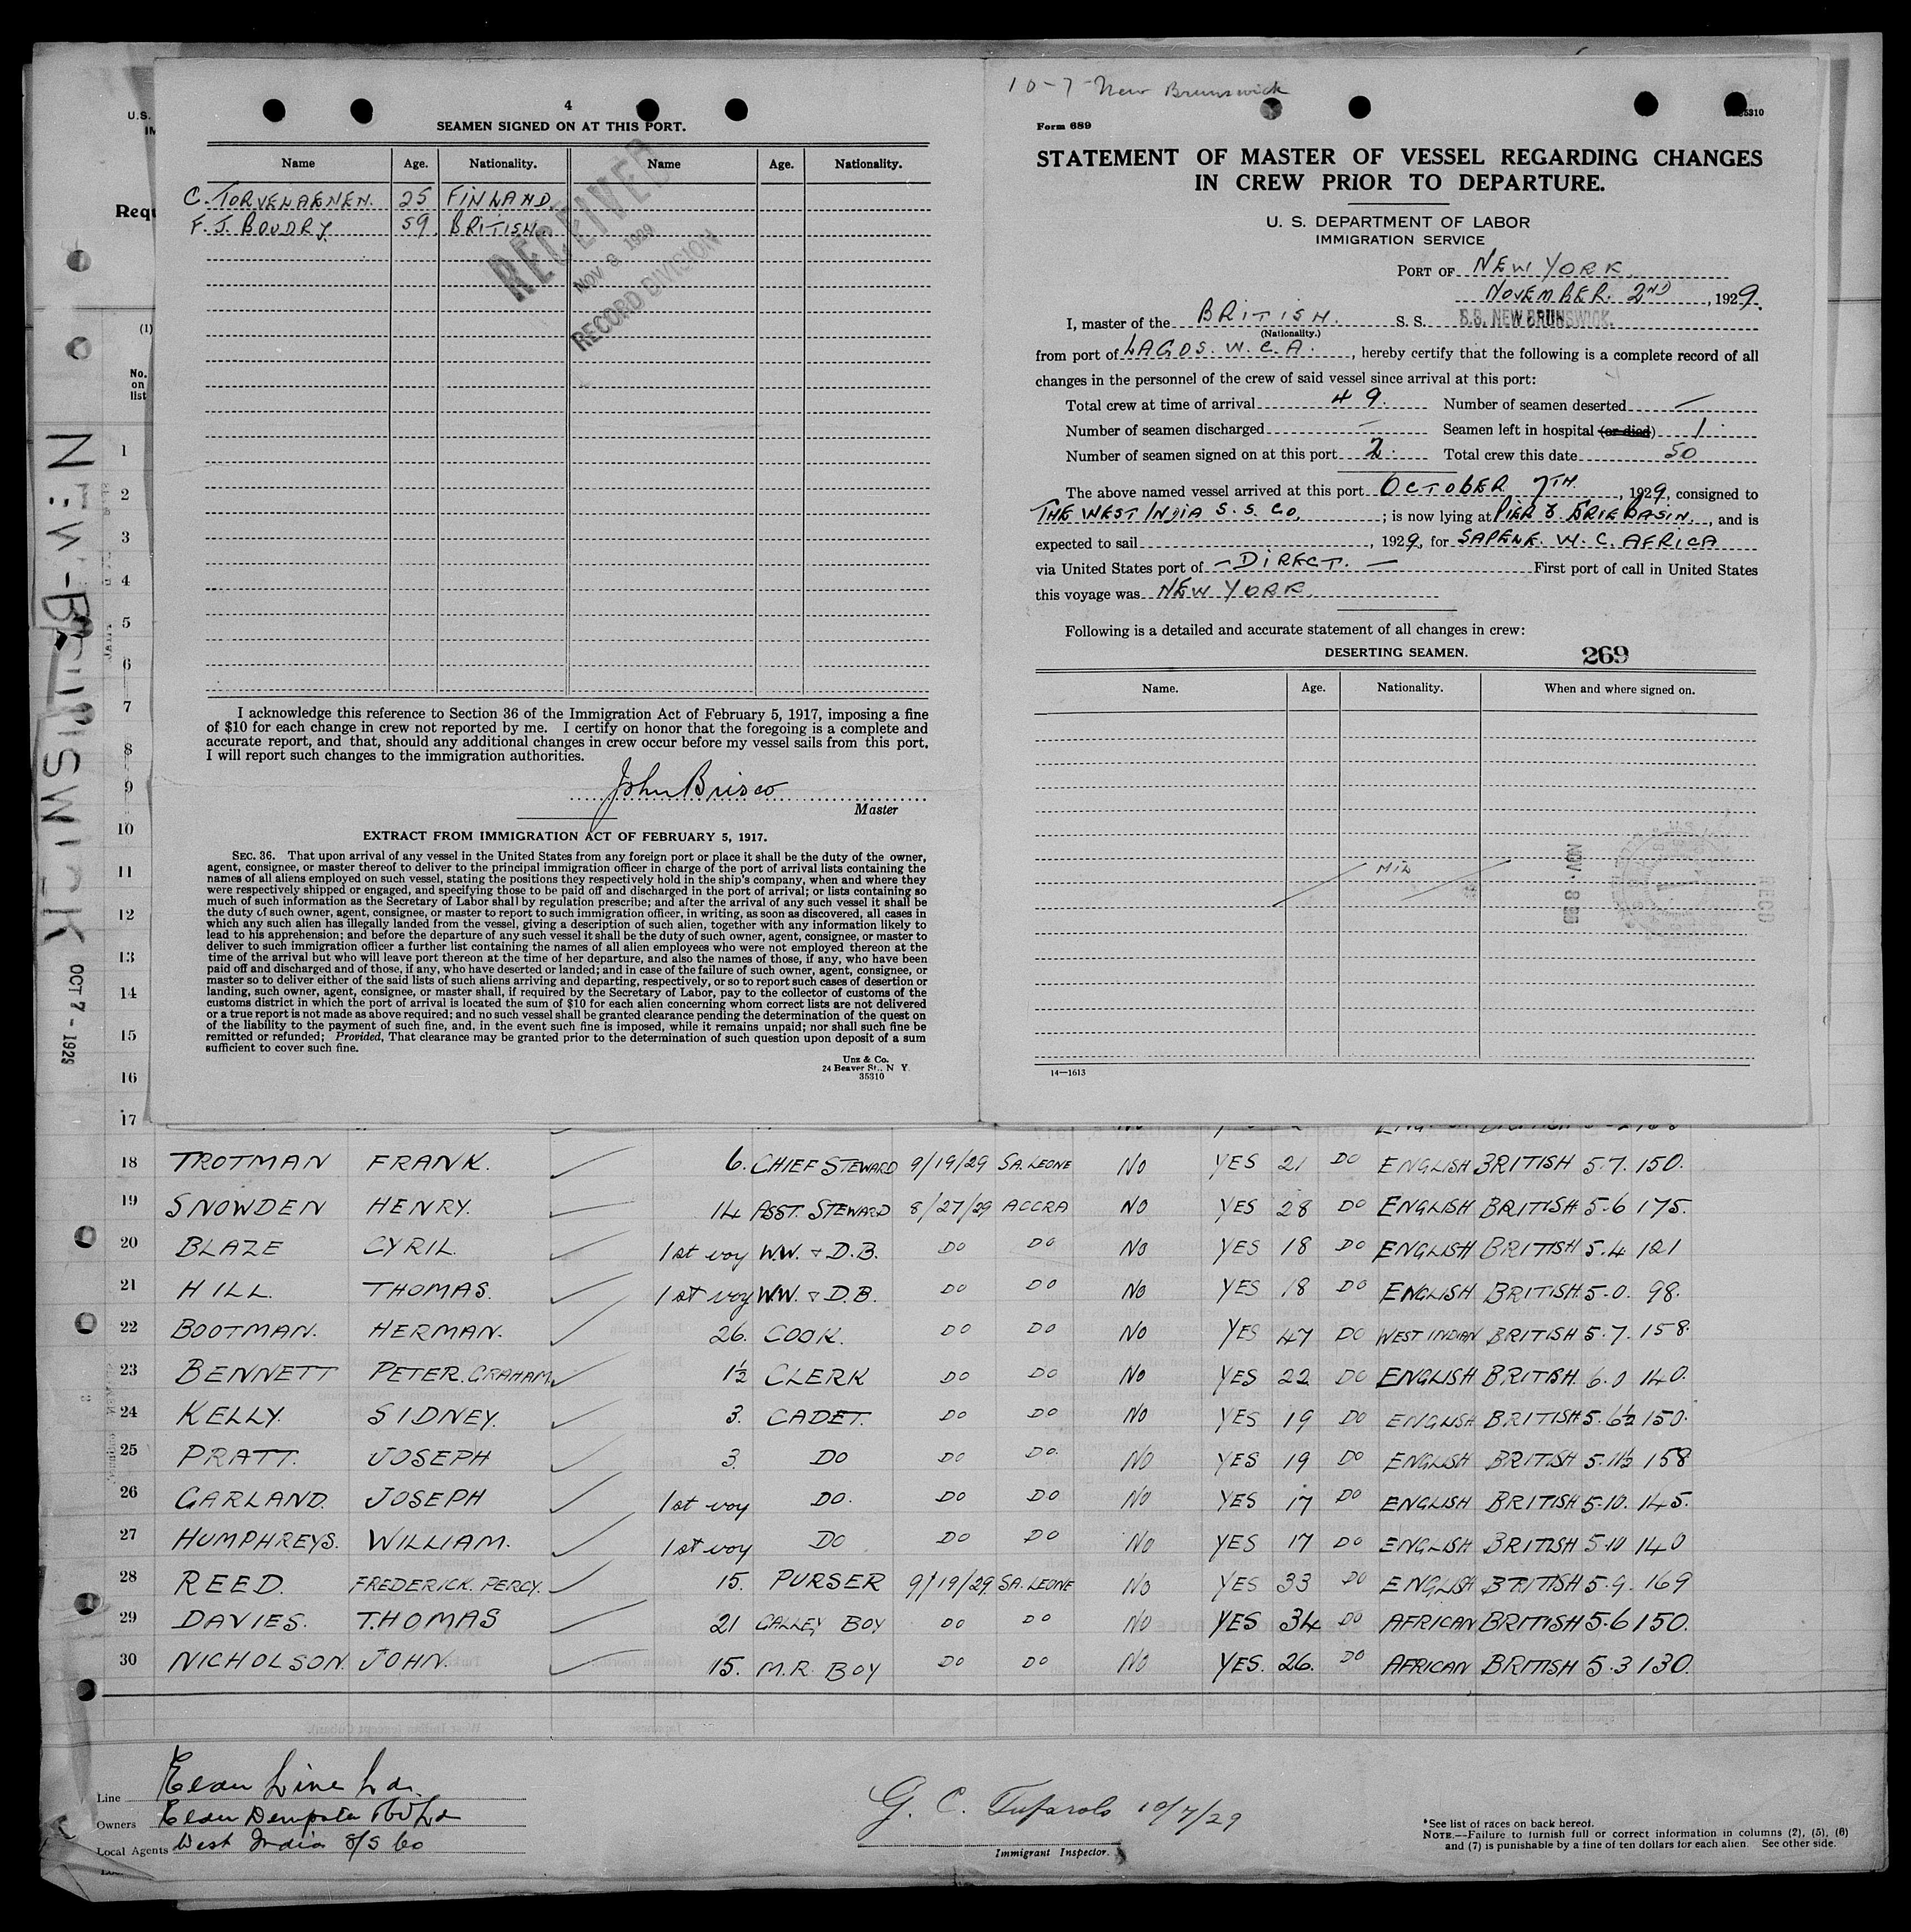 4
SEAMEN SIGNED ON AT THIS PORT.
Name Age. Nationality. Name Age. Nationality.
C. TORVENAENEN. 25 FINLAND
F. J. BOUDRY. 59 BRITISH.
RECEIVED
NOV 8 1929
RECORD DIVISION
I acknowledge this reference to Section 36 of the Immigration Act of February 5, 1917, imposing a fine
of $10 for each change in crew not reported by me. I certify on honor that the foregoing is a complete and
accurate report, and that, should any additional changes in crew occur before my vessel sails from this port,
I will report such changes to the immigration authorities.
John Brisco
Master
EXTRACT FROM IMMIGRATION ACT OF FEBRUARY 5, 1917.
SEC. 36. That upon arrival of any vessel in the United States from any foreign port or place it shall be the duty of the owner,
agent, consignee, or master thereof to deliver to the principal immigration officer in charge of the port of arrival lists containing the
names of all aliens employed on such vessel, stating the positions they respectively hold in the ship's company, when and where they
were respectively shipped or engaged, and specifying those to be paid off and discharged in the port of arrival; or lists containing so
much of such information as the Secretary of Labor shall by regulation prescribe; and after the arrival of any such vessel it shall be
the duty of such owner, agent, consignee, or master to report to such immigration officer, in writing, as soon as discovered, all cases in
which any such alien has illegally landed from the vessel, giving a description of such alien, together with any information likely to
lead to his apprehension; and before the departure of any such vessel it shall be the duty of such owner, agent, consignee, or master to
deliver to such immigration officer a further list containing the names of all alien employees who were not employed thereon at the
time of the arrival but who will leave port thereon at the time of her departure, and also the names of those, if any, who have been
paid off and discharged and of those, if any, who have deserted or landed; and in case of the failure of such owner, agent, consignee, or
master so to deliver either of the said lists of such aliens arriving and departing, respectively, or so to report such cases of desertion or
landing, such owner, agent, consignee, or master shall, if required by the Secretary of Labor, pay to the collector of customs of the
customs district in which the port of arrival is located the sum of $10 for each alien concerning whom correct lists are not delivered
or a true report is not made as above required; and no such vessel shall be granted clearance pending the determination of the quest on
of the liability to the payment of such fine, and, in the event such fine is imposed, while it remains unpaid; nor shall such fine be
remitted or refunded; Provided, That clearance may be granted prior to the determination of such question upon deposit of a sum
sufficient to cover such fine.
Unz & Co.
24 Beaver St., N Y.
35310
10-7-New Brunswick
Form 689
35310
STATEMENT OF MASTER OF VESSEL REGARDING CHANGES
IN CREW PRIOR TO DEPARTURE.
U. S. DEPARTMENT OF LABOR
IMMIGRATION SERVICE
PORT OF NEW YORK.
NOVEMBER. 2ND, 1929.
I, master of the BRITISH. S. S. S.S. NEW BRUNSWICK.
(Nationality.)
from port of LAGOS. W. C. A., hereby certify that the following is a complete record of all
changes in the personnel of the crew of said vessel since arrival at this port:
Total crew at time of arrival 49. Number of seamen deserted —
Number of seamen discharged — Seamen left in hospital (or died) 1
Number of seamen signed on at this port 2. Total crew this date 50
The above named vessel arrived at this port OCTOBER 7TH., 1929, consigned to
THE WEST INDIA S. S. CO.; is now lying at PIER 8 ERIE BASIN., and is
expected to sail , 1929, for SAPELE. W. C. AFRICA
via United States port of — DIRECT. — First port of call in United States
this voyage was NEW YORK.
Following is a detailed and accurate statement of all changes in crew:
DESERTING SEAMEN. 269
Name. Age. Nationality. When and where signed on.
NIL
NOV 8
RECD
14—1613
U.S.
IM
Requ
(1)
No.
on
list
NEW-BRUNSWICK OCT 7 - 1929
1
2
3
4
5
6
7
8
9
10
11
12
13
14
15
16
17
18 TROTMAN FRANK. 6. CHIEF STEWARD 9/19/29 SA. LEONE NO YES 21 DO ENGLISH BRITISH 5.7. 150.
19 SNOWDEN HENRY. 14 ASST. STEWARD 8/27/29 ACCRA NO YES 28 DO ENGLISH BRITISH 5.6 175.
20 BLAZE CYRIL. 1st voy W.W. & D.B. DO DO NO YES 18 DO ENGLISH BRITISH 5.4 121
21 HILL. THOMAS. 1st voy W.W. & D.B. DO DO NO YES 18 DO ENGLISH BRITISH 5.0. 98.
22 BOOTMAN. HERMAN. 26. COOK. DO DO NO YES 47 DO WEST INDIAN BRITISH 5.7. 158.
23 BENNETT PETER. GRAHAM. 1½ CLERK DO DO NO YES 22 DO ENGLISH BRITISH. 6.0 140.
24 KELLY. SIDNEY. 3. CADET. DO DO NO YES 19 DO ENGLISH BRITISH 5.6½ 150.
25 PRATT. JOSEPH 3. DO DO DO. NO YES 19 DO ENGLISH BRITISH 5.11½ 158
26 GARLAND. JOSEPH 1st voy DO. DO DO NO YES 17 DO ENGLISH BRITISH 5.10. 145.
27 HUMPHREYS. WILLIAM. 1st voy DO DO DO NO YES 17 DO ENGLISH BRITISH 5.10 140
28 REED. FREDERICK. PERCY. 15. PURSER 9/19/29 SA. LEONE NO YES 33 DO ENGLISH BRITISH 5.9. 169
29 DAVIES. THOMAS 21 GALLEY BOY DO DO NO YES 34 DO AFRICAN BRITISH 5.6 150.
30 NICHOLSON. JOHN. 15. M.R. BOY DO DO NO YES. 26. DO AFRICAN BRITISH 5.3 130.
Line Elder Line Ld.
Owners Elder Dempster & Co Ld
Local Agents West India S/S Co
G. C. 10/7/29
Immigrant Inspector.
*See list of races on back hereof.
NOTE.—Failure to furnish full or correct information in columns (2), (5), (6)
and (7) is punishable by a fine of ten dollars for each alien. See other side.